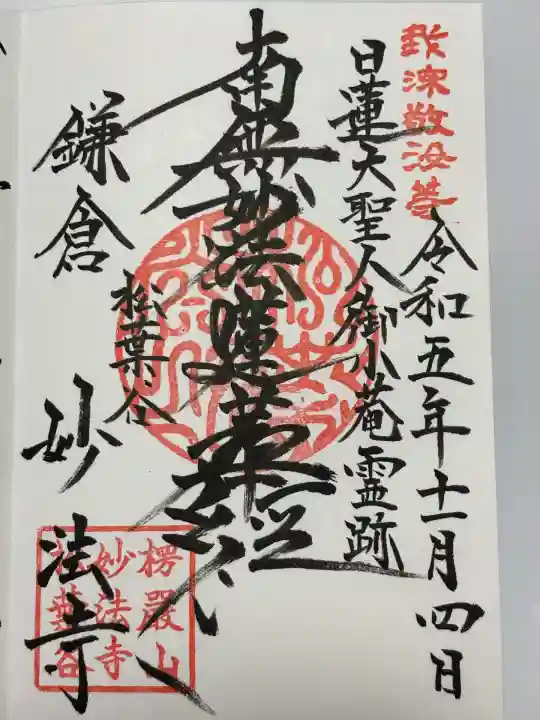 令和五年十一月四日
日蓮大聖人御小菴霊跡
南無妙法蓮華経
松葉谷
鎌倉 妙法寺
楞厳山
妙法寺
松葉谷